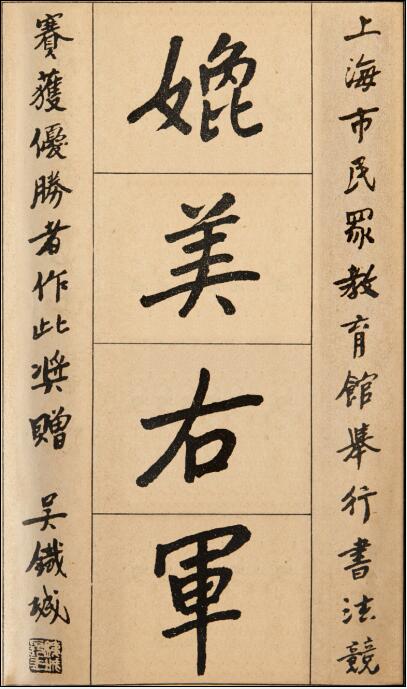 上海市民眾教育館舉行書法競
媲美右軍
賽獲優勝者作此獎贈 吳鐵城